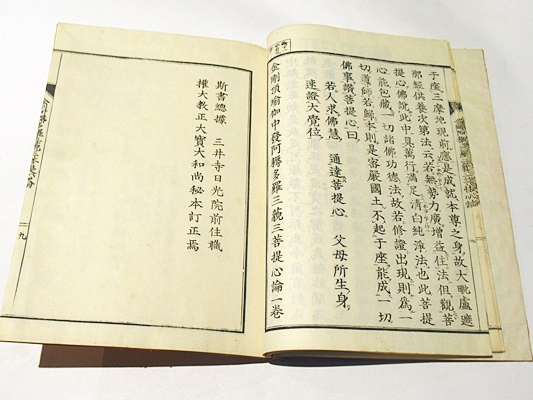 于座三摩地現前應是成就本尊之身故大毗盧遮
那經供養次第法云若無勢力廣增益住法但觀菩
提心佛說此中具萬行滿足清白純淨法也此菩提
心能包藏一切諸佛功德法故若修證出現則為一
切導師若歸本則是密嚴國土不起于座能成一切
佛事讚菩提心曰
若人求佛慧 通達菩提心 父母所生身
速證大覺位
金剛頂瑜伽中發阿耨多羅三藐三菩提心論一卷
斯書總據 三井寺日光院前住職
權大教正大寶大和尚秘本訂正焉
九